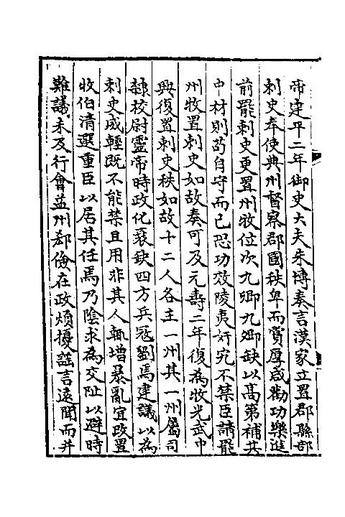 帝建平二年御史大夫朱博奏言漢家立置郡縣部
刺史奉使典州督察郡國秩卑而賞厚咸勸功樂進
前罷刺史更置州牧位次九卿九卿缺以高第補其
中材則苟自守而已恐功效陵夷奸宄不禁臣請罷
州牧置刺史如故奏可及元壽二年復為牧光武中
興復置刺史秩如故十二人各主一州其一州屬司
隸校尉靈帝時政化衰缺四方兵寇劉焉建議以為
刺史威輕既不能禁且用非其人輒增暴亂宜改置
收伯清選重臣以居其任焉乃陰求為交阯以避時
難議未及行會益州郗儉在政煩擾謡言遠聞而并